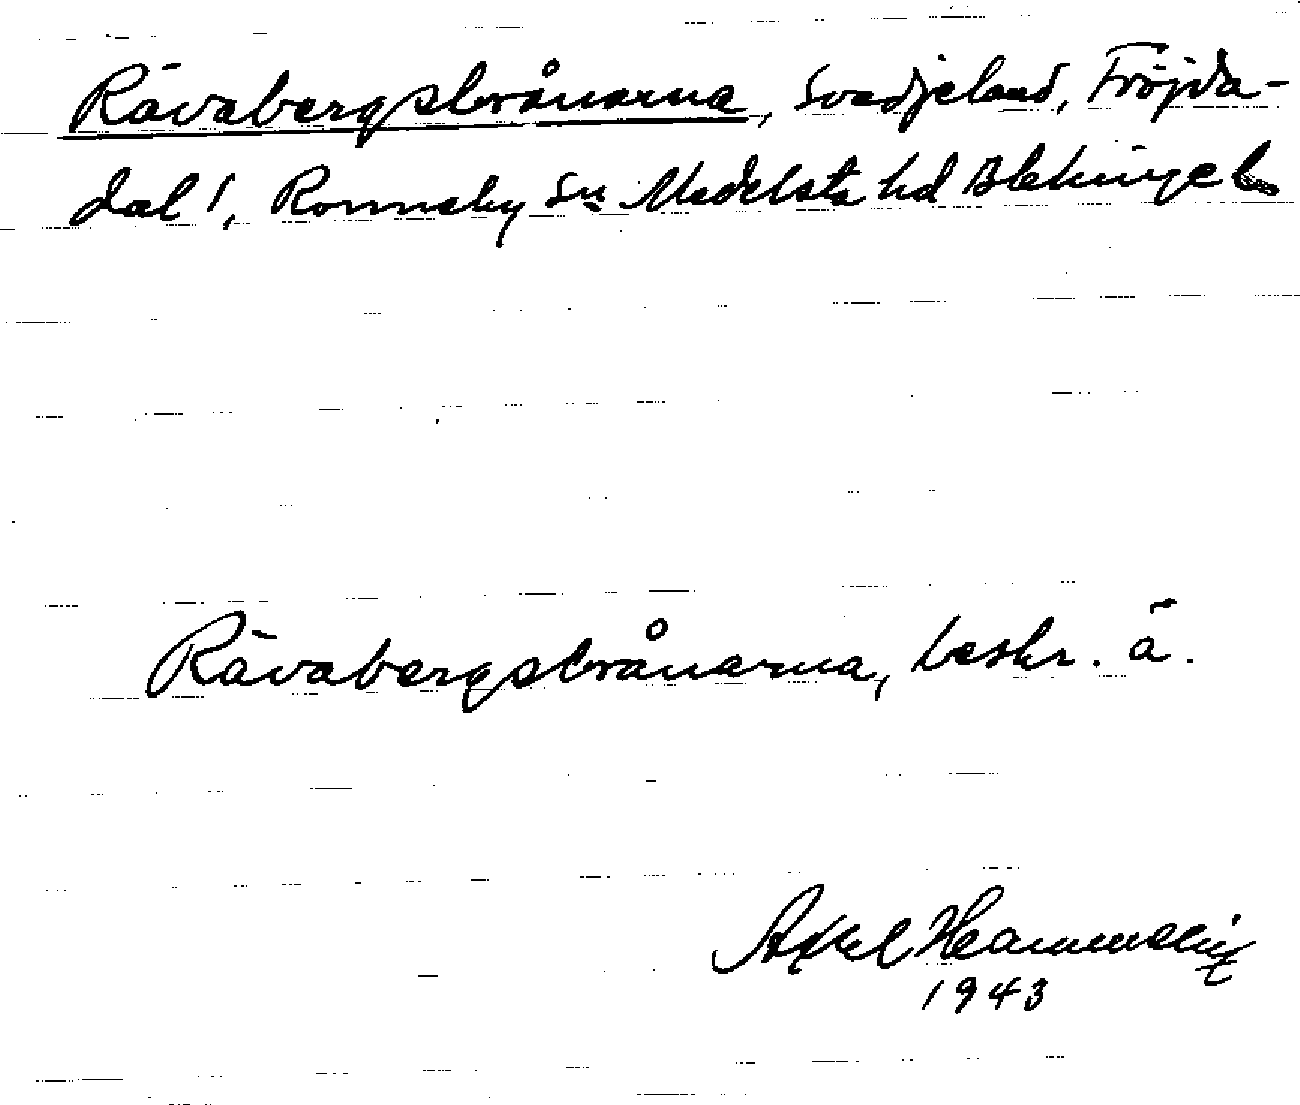 Rävabergsbrånarna, Svedjeland, Fröjda-
dal 1, Ronneby Sn Medelsta hd Blekinge l
Rävabergsbrånarna, beskr. ä.
Axel
1943